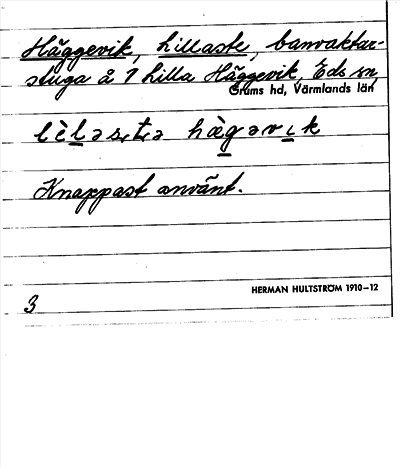 Häggevik, hillaste, banvaktar-
stuga å 1 hilla Häggevik, Eds sn,
Grums hd, Värmlands län
Knappast använt.
HERMAN HULTSTRÖM 1910–12
3